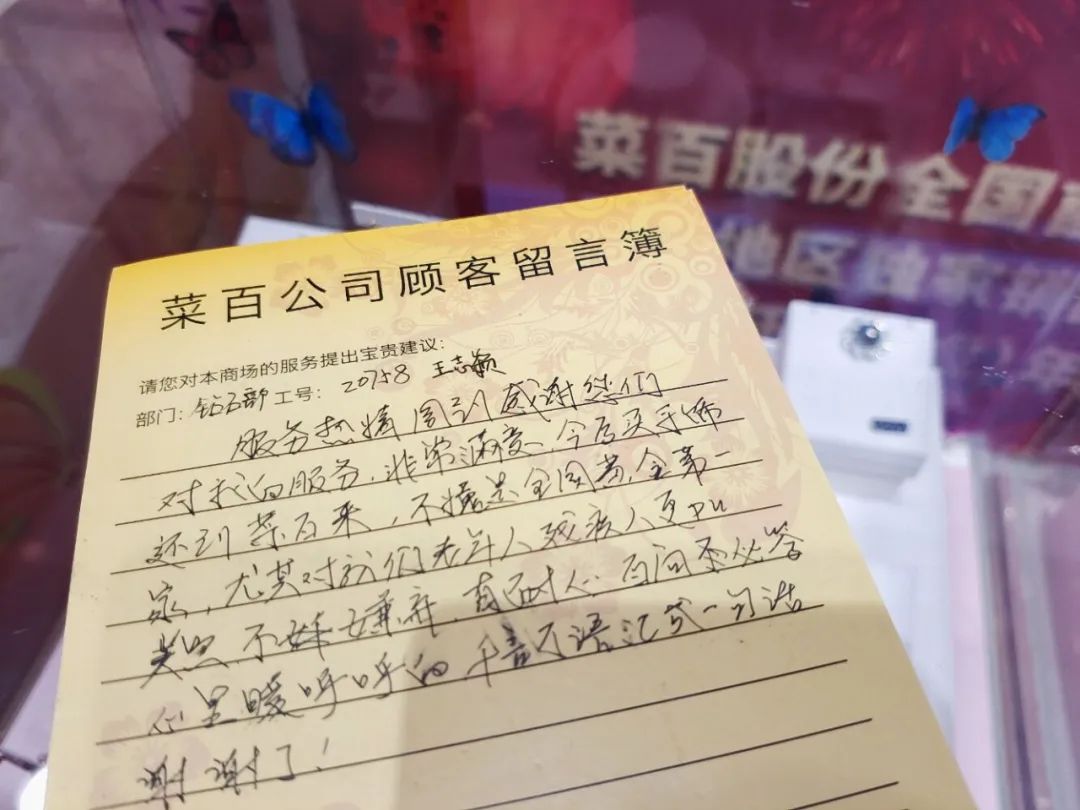 菜百股份全国
地区
菜百公司顾客留言簿
请您对本商场的服务提出宝贵建议:
部门: 钻石部 工号: 20758 王志颖
服务热情周到感谢您们
对我的服务,非常满意、今后买手饰
还到菜百来,不愧是全国黄金第一
家,尤其对我们老年人残疾人更
关照,不嫌弃,有耐心 百问不厌答
心里暖呼呼的 千言万语汇成一句话
谢谢了!